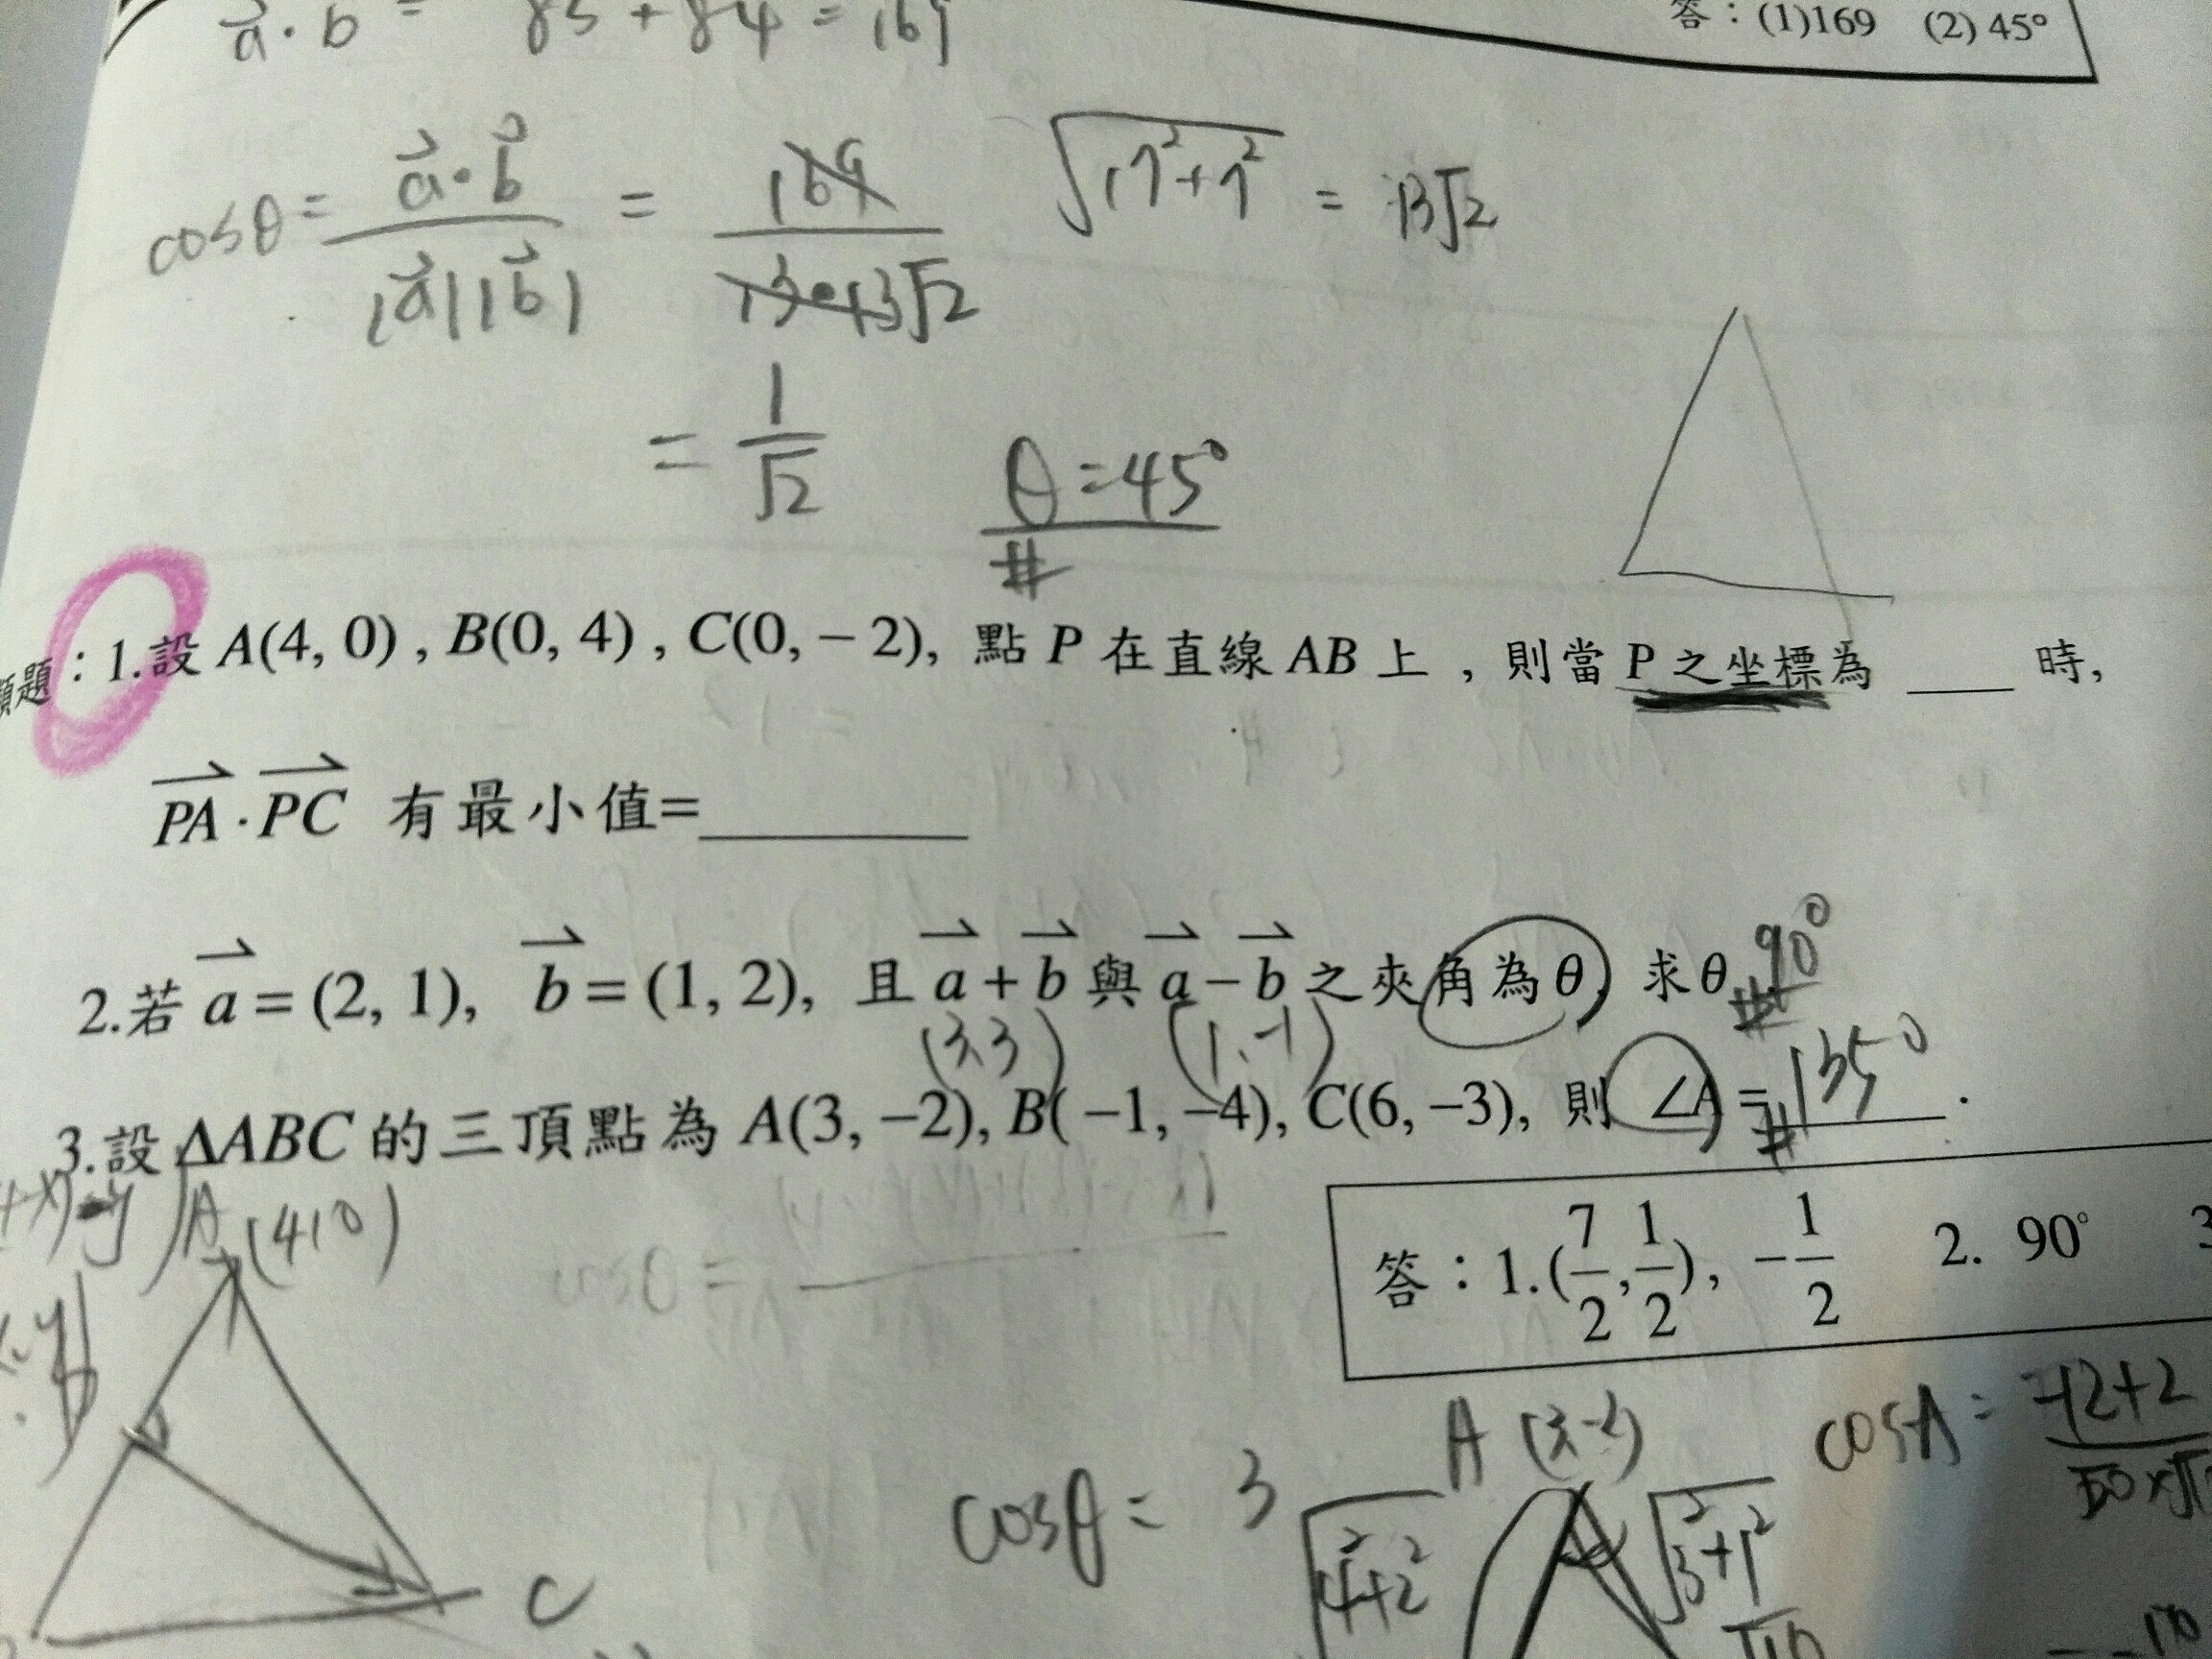 a⃗ · b = 85 + 84 = 169
答：(1)169 (2) 45°
cosθ = a⃗·b⃗ / |a⃗||b⃗| = 169 / 13·13√2
√17²+7² = 13√2
= 1/√2
θ = 45°
#
類題：1.設 A(4, 0) , B(0, 4) , C(0, − 2), 點 P 在直線 AB 上 , 則當 P 之坐標為 ____ 時,
PA⃗ · PC⃗ 有最小值=________
2.若 a⃗ = (2, 1), b⃗ = (1, 2), 且 a⃗ + b⃗ 與 a⃗ − b⃗ 之夾角為θ, 求θ 90°
#
(3,3) (1,-1)
3.設 ΔABC 的三頂點為 A(3, −2), B( −1, −4), C(6, −3), 則 ∠A = 135° .
#
A (4,0)
答：1.(7/2, 1/2), −1/2 2. 90° 3
C
cosθ = 3
A (3,-2)
√4²+2²
√3²+1²
√10
cosA = -12+2